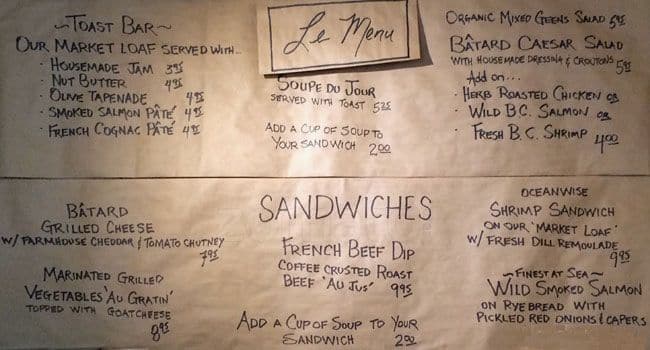 ~Toast Bar~
Our Market Loaf served with...
· Housemade Jam 3.95
· Nut Butter 4.95
· Olive Tapenade 4.95
· Smoked Salmon Pâté 4.95
· French Cognac Pâté 4.95
Le Menu
Soupe du Jour
served with toast 5.25
Add a cup of soup to
your sandwich 2.00
Organic Mixed Geens Salad 5.95
Bâtard Caesar Salad
with housemade dressing & croutons 5.95
Add on...
· Herb Roasted Chicken or
· Wild B.C. Salmon or
· Fresh B.C. Shrimp 4.00
Bâtard
Grilled Cheese
w/ farmhouse cheddar & tomato chutney
7.95
Marinated Grilled
Vegetables 'Au Gratin'
topped with goatcheese
8.95
SANDWICHES
French Beef Dip
coffee crusted roast
beef 'au jus' 9.95
Add a cup of soup to your
sandwich 2.00
Oceanwise
Shrimp Sandwich
on our 'market loaf'
w/ fresh dill remoulade
9.95
~Finest at Sea~
Wild Smoked Salmon
on rye bread with
pickled red onions & capers